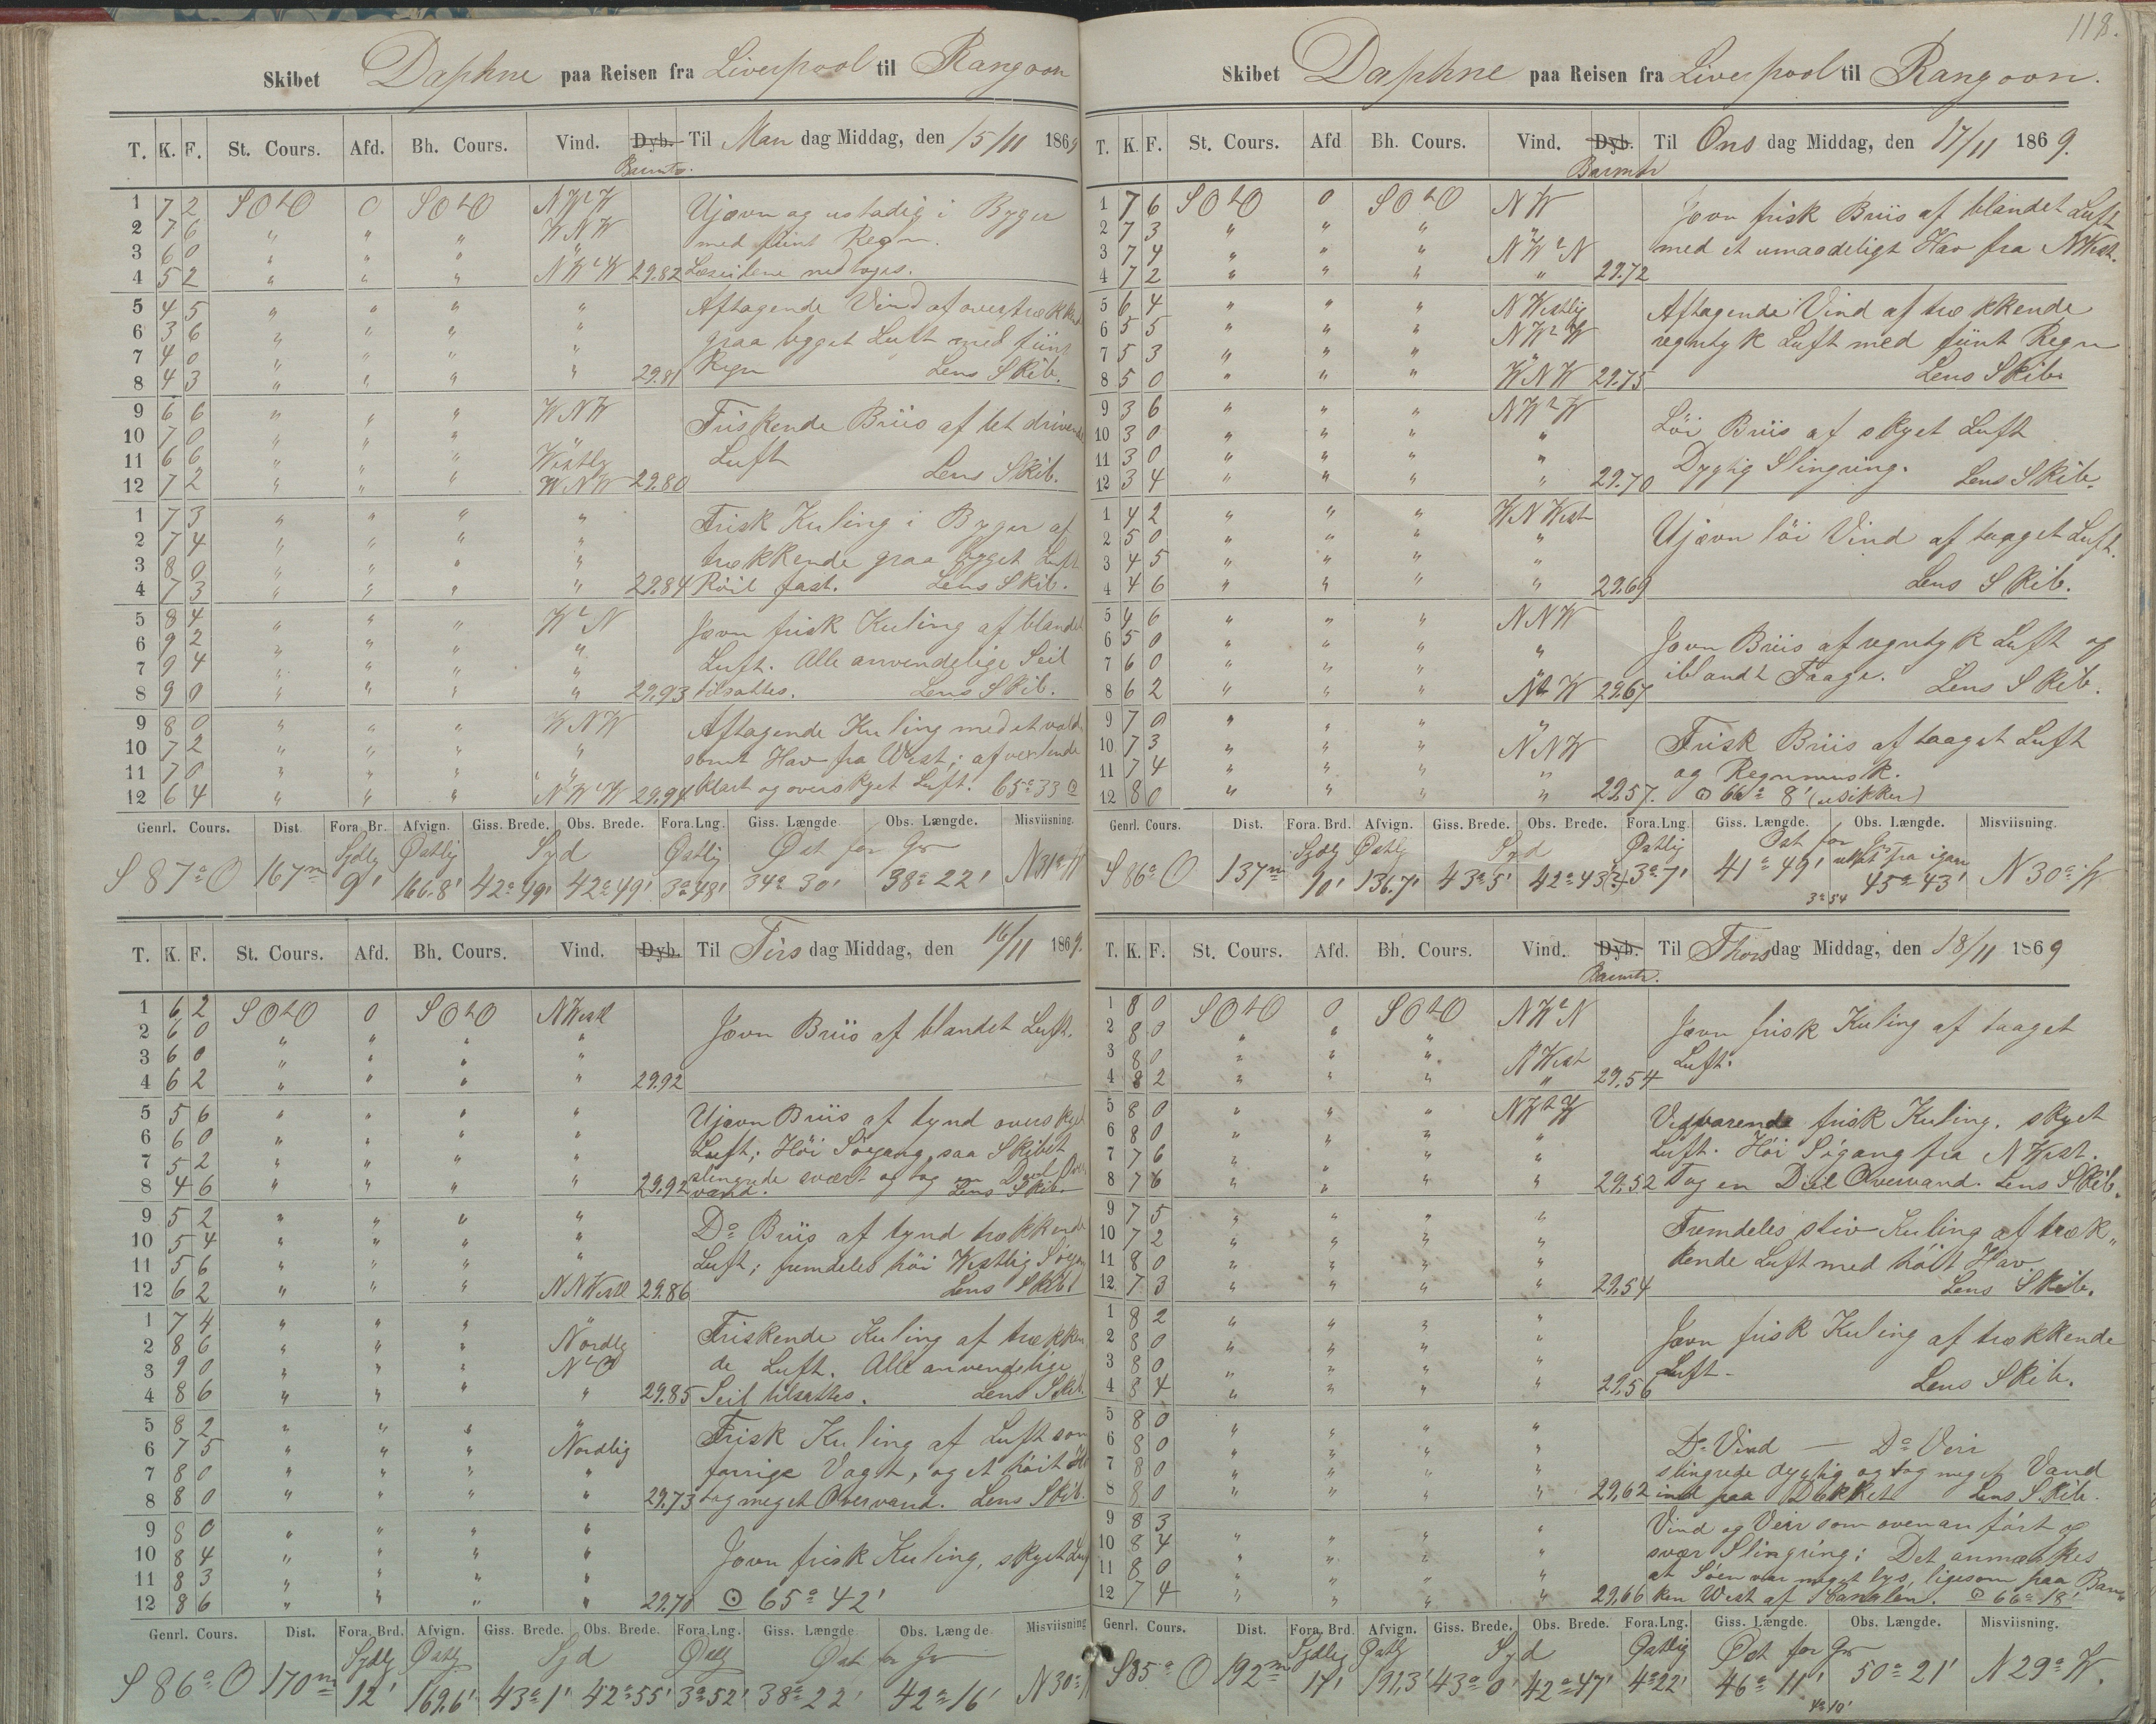 Skibet Daphne paa Reisen fra Liverpool til Rangoon
T. K. F. St. Cours. Afd. Bh. Cours. Vind. Dyb. Til Man dag Middag, den 15/11 1869
Baromtr.
1 7 2 SOtO 0 SOtO NWtW Ujævn og ustadig i Byger
2 7 6 " " " WNW med fiint Regn.
3 6 0 " " " "
4 5 2 " " " NWtW 29.82 Læseilene nedtoges.
5 4 5 " " " " Aftagende Vind af overtrækkende
6 3 6 " " " " graa bygget Luft med fiint
7 4 0 " " " "
8 4 3 " " " " 29.81 Regn Lens Skib.
9 6 6 " " " WNW Friskende Briis af tet drivende
10 7 0 " " "
11 6 6 " " " Westlig Luft
12 7 2 " " " WNW 29.80 Lens Skib.
1 7 3 " " " " Frisk Kuling i Byger af
2 7 4 " " " "
3 8 0 " " " " trækkende graa bygget Luft
4 7 3 " " " " 29.84 Röil fast. Lens Skib.
5 8 4 " " " WtN Jævn frisk Kuling af blandet
6 9 2 " " " "
7 9 4 " " " " Luft. Alle anvendelige Seil
8 9 0 " " " " 29.93 tilsattes. Lens Skib.
9 8 0 " " " WNW Aftagende Kuling med et vold-
10 7 2 " " " " somt Hav fra West; afvexlende
11 7 0 " " " "
12 6 4 " " " NWtW 29.94 klart og overskyet Luft. 65° 33 ⊙
Genrl. Cours. Dist. Fora. Br. Afvign. Giss. Brede. Obs. Brede. Fora. Lng. Giss. Længde. Obs. Længde. Misviisning.
Sydlg Østlig Syd Østlig Øst for Gr
S 87° O 167 m 9' 166.8' 42° 49' 42° 49' 3° 48' 34° 30' 38° 22' N 31° W
T. K. F. St. Cours. Afd. Bh. Cours. Vind. Dyb. Til Tirs dag Middag, den 16/11 1869.
1 6 2 SOtO 0 SOtO NWestl Jævn Briis af blandet Luft.
2 6 0 " " " "
3 6 0 " " " "
4 6 2 " " " " 29.92
5 5 6 " " " " Ujævn Briis af tynd overskyet
6 6 0 " " " "
7 5 2 " " " " Luft; Höi Sögang, saa Skibet
8 4 6 " " " " 29.92 slingrede svært og tog en Deel Over-
vand. Lens Skib.
9 5 2 " " " " Do Briis af tynd trækkende
10 5 4 " " " "
11 5 6 " " " Luft; fremdeles höi Westlig Sögang
12 6 2 " " " NNWestl 29.86 Lens Skib
1 7 4 " " " " Friskende Kuling af trækken-
2 8 6 " " " Nordlg
3 9 0 " " " NtO de Luft. Alle anvendelige
4 8 6 " " " " 29.85 Seil tilsattes. Lens Skib.
5 8 2 " " " " Frisk Kuling af Luft som
6 7 5 " " " Nordlig
7 8 0 " " " " forrige Vagt, og et höit
8 8 0 " " " " 29.73 tog meget Overvand. Lens Skib.
9 8 0 " " " "
10 8 4 " " " " Jævn frisk Kuling, skyet Luft
11 8 3 " " " "
12 8 6 " " " " 29.70 ⊙ 65° 42'
Genrl. Cours. Dist. Fora. Brd. Afvign. Giss. Brede. Obs. Brede. Fora. Lng. Giss. Længde. Obs. Længde. Misviisning
Sydlg Østlg Syd Østlg Øst for Gr
S 86° O 170 m 12' 169.6' 43° 1' 42° 55' 3° 52' 38° 22' 42° 16' N 30°
118.
Skibet Daphne paa Reisen fra Liverpool til Rangoon.
T. K. F. St. Cours. Afd Bh. Cours. Vind. Dyb. Til Ons dag Middag, den 17/11 1869.
Baromtr
1 7 6 SOtO 0 SOtO NW Jævn frisk Briis af blandet Luft
2 7 3 " " " "
3 7 4 " " " NWtN med et umaadeligt Hav fra NWest.
4 7 2 " " " " 29.72
5 6 4 " " " NWestlig Aftagende Vind af trækkende
6 5 5 " " " NWtW
7 5 3 " " " " regntyk Luft med fiint Regn
8 5 0 " " " WNW 29.75 Lens Skib
9 3 6 " " " NWtW Löi Briis af skyet Luft
10 3 0 " " " "
11 3 0 " " " " Dygtig Slingring.
12 3 4 " " " " 29.70 Lens Skib.
1 4 2 " " " WNWest Ujævn löi Vind af taaget Luft.
2 5 0 " " " "
3 4 5 " " " "
4 4 6 " " " " 29.69 Lens Skib.
5 4 6 " " " NNW Jævn Briis af regntyk Luft og
6 5 0 " " " "
7 6 0 " " " " iblandt Taage.
8 6 2 " " " NtW 29.67 Lens Skib.
9 7 0 " " " " Frisk Briis af taaget Luft
10 7 3 " " " NNW
11 7 4 " " " " og Regnmusk.
12 8 0 " " " " 29.57. ⊙ 66° 8' (usikker)
Genrl. Cours. Dist. Fora. Brd. Afvign. Giss. Brede. Obs. Brede. Fora. Lng. Giss. Længde. Obs. Længde. Misviisning.
Sydlg Østlig Syd Østlig Øst for Gr
S 86° O 137 m 10' 136.7' 43° 5' 42° 43' (?) 3° 7' 41° 49' 45° 43' N 30° W
3° 54
T. K. F. St. Cours. Afd. Bh. Cours. Vind. Dyb. Til Thors dag Middag, den 18/11 1869
Baromtr.
1 8 0 SOtO 0 SOtO NWtN Jævn frisk Kuling af taaget
2 8 0 " " "
3 8 0 " " " NWest Luft.
4 8 2 " " " " 29.54
5 8 0 " " " NWtW Vedvarende frisk Kuling. skyet
6 8 0 " " " "
7 7 6 " " " " Luft. Höi Sögang fra NWest.
8 7 6 " " " " 29.52 Tog en Deel Overvand. Lens Skib.
9 7 5 " " " " Fremdeles stiv Kuling af træk-
10 7 2 " " " "
11 8 0 " " " " kende Luft med höit Hav
12 7 3 " " " " 29.54 Lens Skib.
1 8 2 " " " " Jævn frisk Kuling af trækkende
2 8 0 " " " "
3 8 0 " " " " Luft.
4 8 4 " " " " 29.56 Lens Skib.
5 8 0 " " " "
6 8 0 " " " " Do Vind — Do Veir
7 8 0 " " " " slingrede dygtig og tog meget Vand
8 8 0 " " " " 29.62 ind paa Dækket Lens Skib.
9 8 3 " Vind og Veir som ovenanfört og
10 8 4 " " " " svær Slingring; Det anmærkes
11 8 0 " " " at Söen var meget lys, ligesom paa Ban-
12 7 4 " " " " 29.66 ken West af Kanalen. ⊙ 66° 18'
Genrl. Cours. Dist. Fora. Brd. Afvign. Giss. Brede. Obs. Brede. Fora. Lng. Giss. Længde. Obs. Længde. Misviisning.
Sydlig Østlg Syd Østlig Øst for Gr
S 85° O 192 m 17' 191,3' 43° 0' 42° 47' 4° 22' 46° 11' 50° 21' N 29° W.
4° 10'